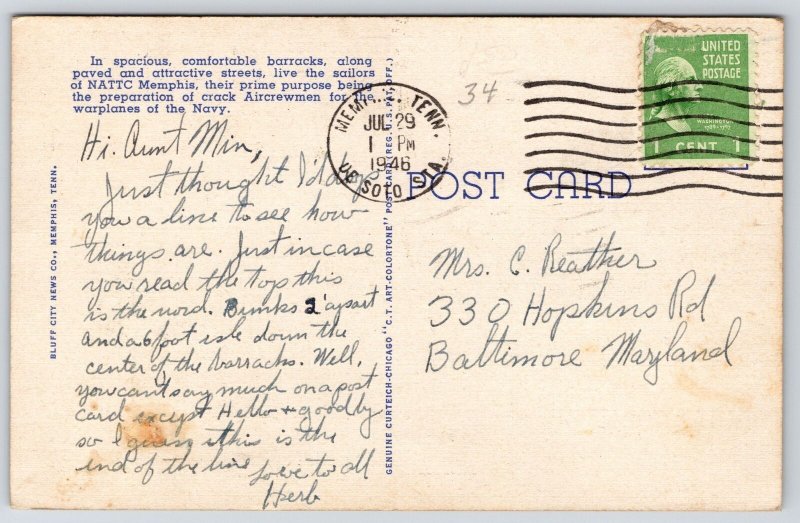 In spacious, comfortable barracks, along
paved and attractive streets, live the sailors
of NATTC Memphis, their prime purpose being
the preparation of crack Aircrewmen for the
warplanes of the Navy.
Hi. Aunt Min,
Just thought I'd
you a line to see how
things are. Just in case
you read the top this
is the word. Bunks 2' apart
and a 6 foot isle down the
center of the barracks. Well,
you can't say much on a post
card except Hello + goodby
so I guess this is the
end of the line
Love to all
Herb
BLUFF CITY NEWS CO., MEMPHIS, TENN.
GENUINE CURTEICH-CHICAGO "C.T. ART-COLORTONE" POST CARD (REG. U.S. PAT. OFF.)
34
TENN.
JUL 29
1 PM
1946
DE SOTO STA.
UNITED
STATES
POSTAGE
WASHINGTON
1 CENT 1
POST CARD
Mrs. C. Reather
330 Hopkins Rd
Baltimore Maryland